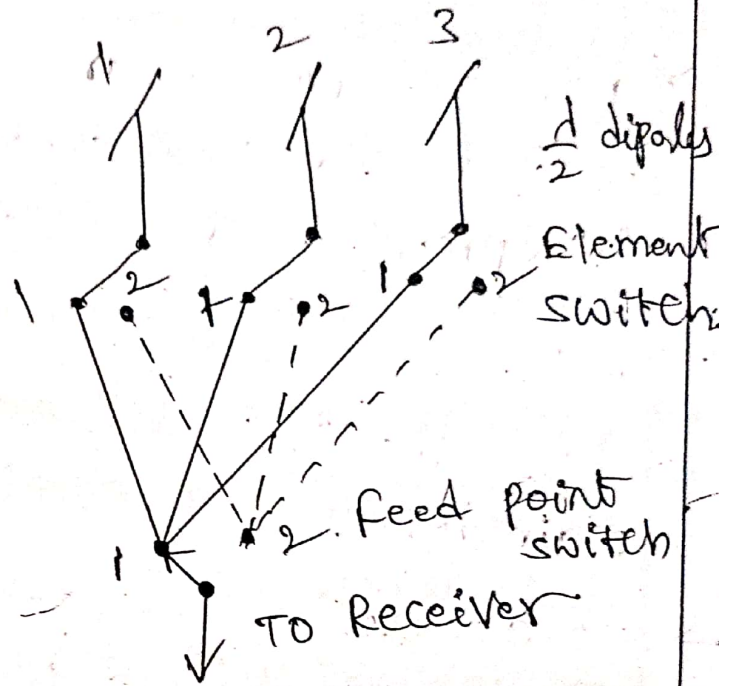 1 2 3
λ/2 dipoles
Element
switch
1 2 1 2 1 2
1 2. feed point
switch
TO Receiver